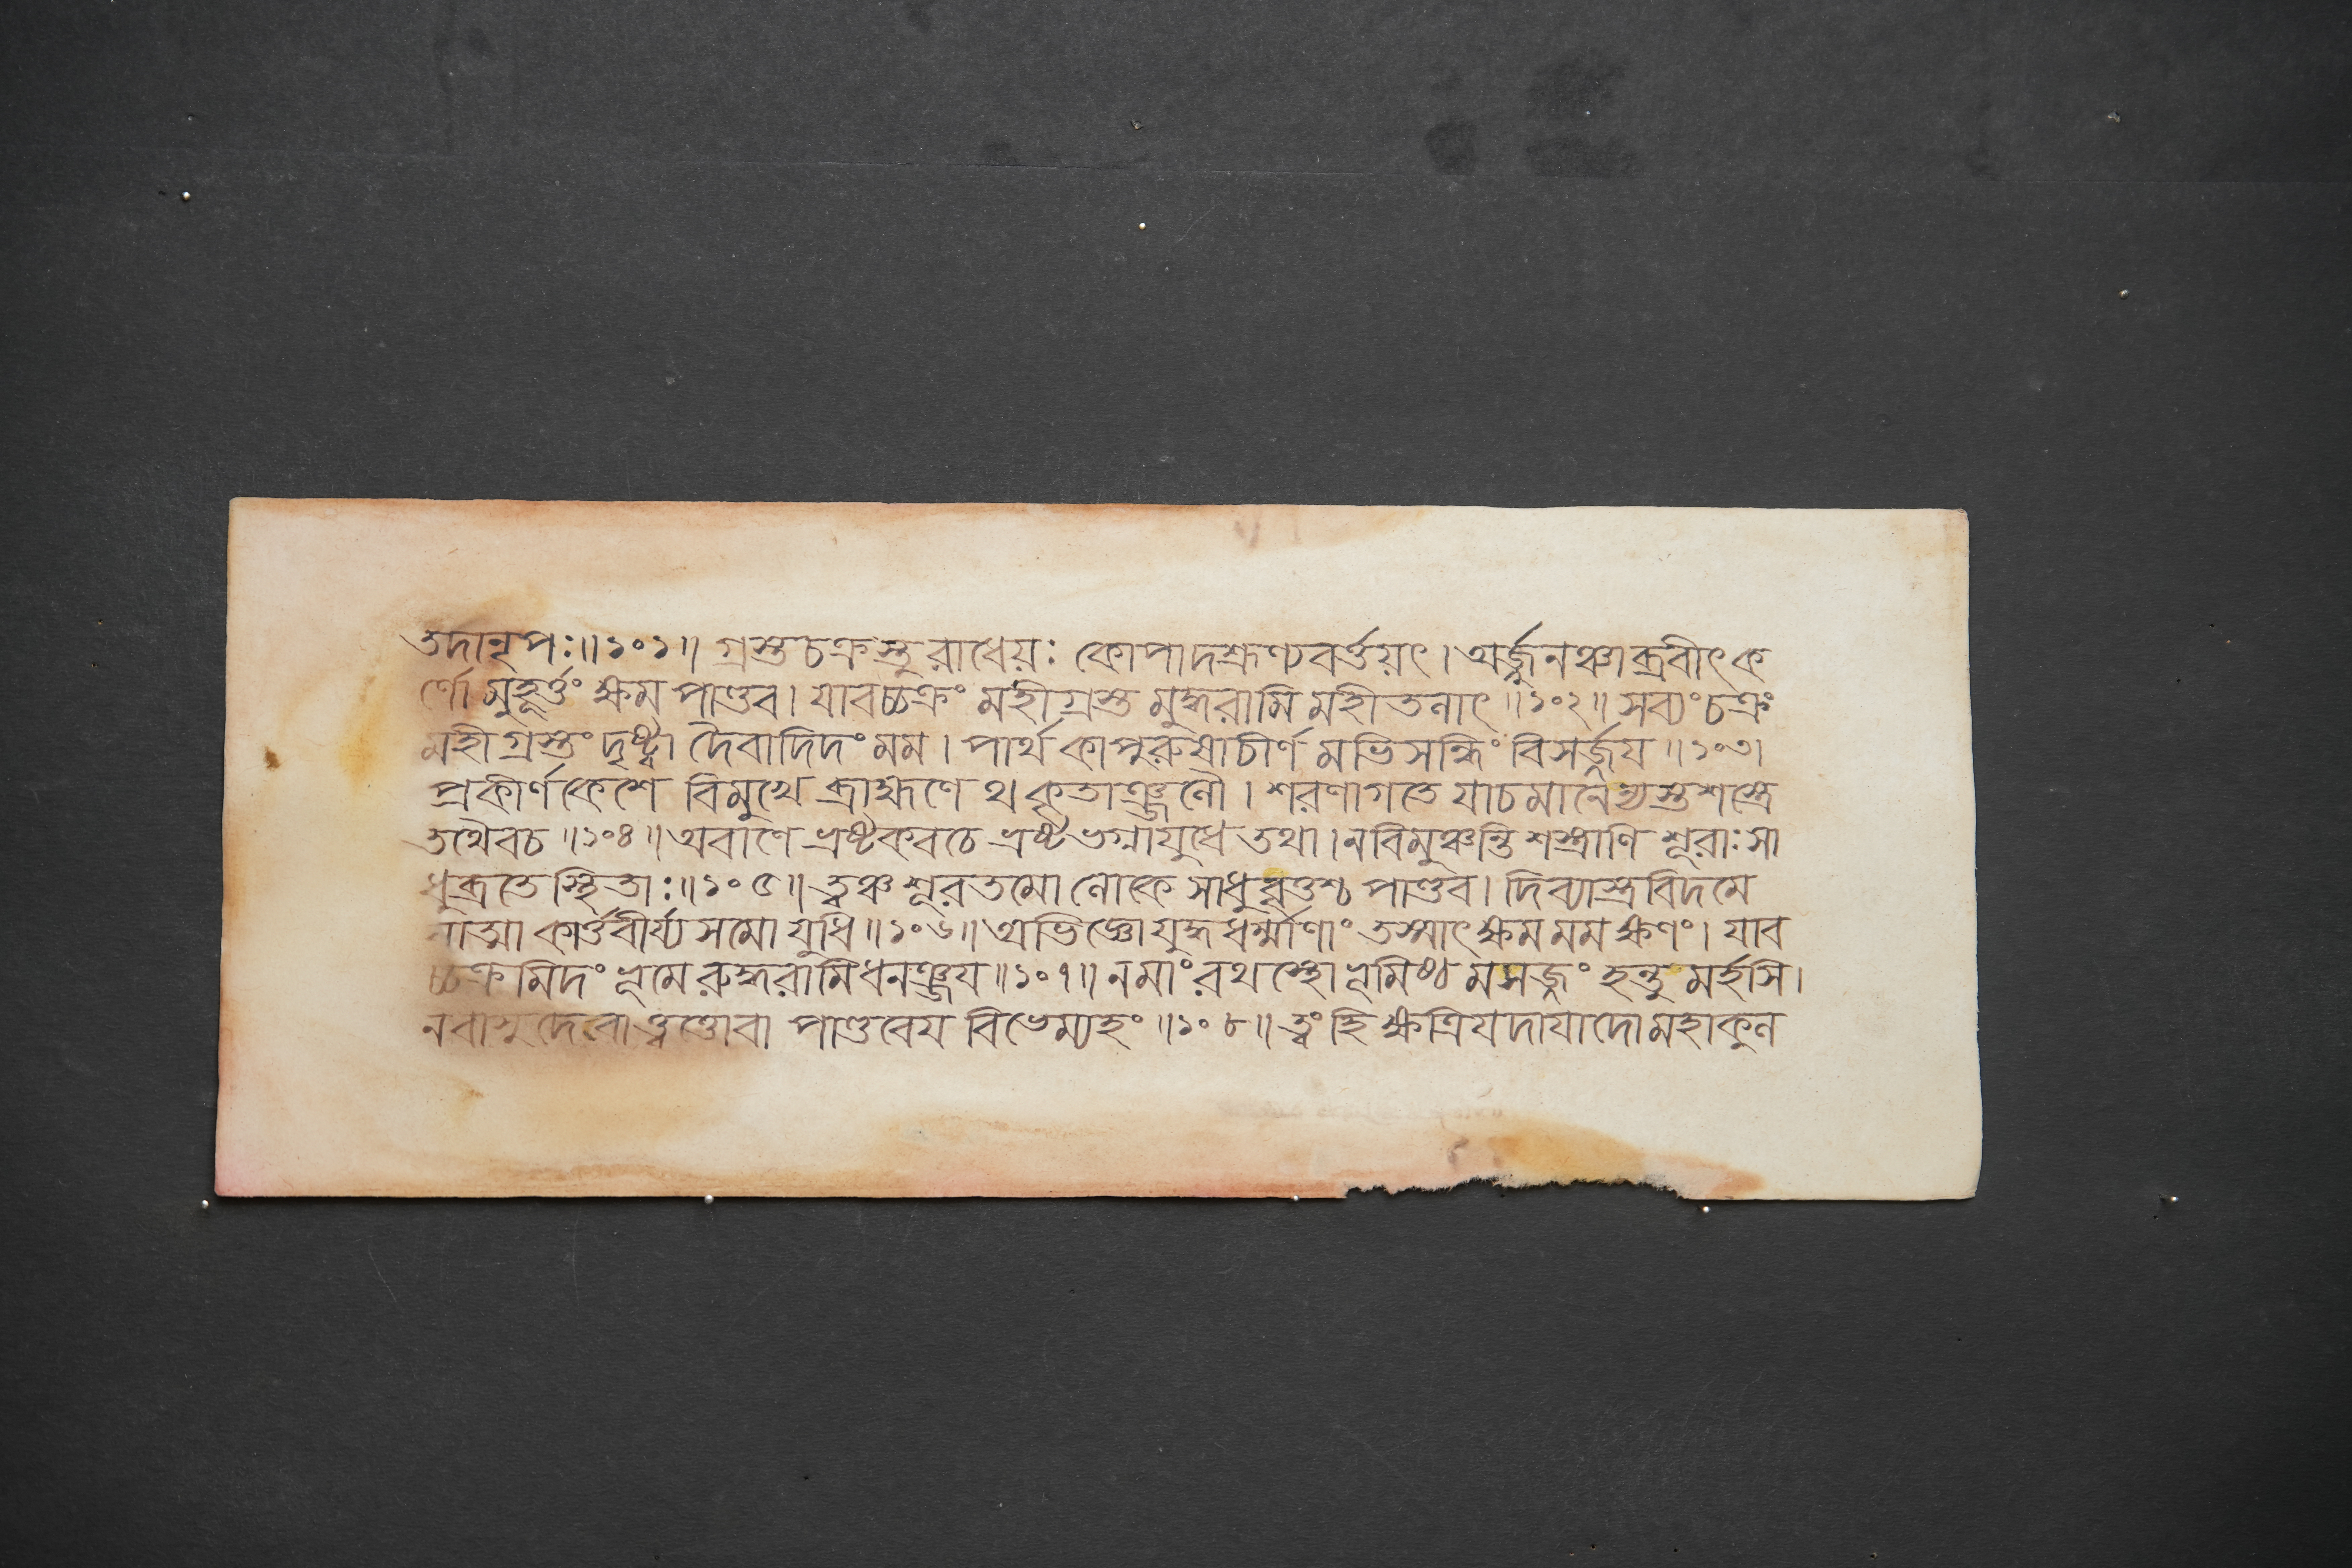 তদানৃপঃ॥১০১॥ গ্রস্তচক্রস্তু রাধেয়ঃ কোপাদশ্রূণ্যবর্ত্তয়ৎ। অর্জ্জুনঞ্চাব্রবীৎক
র্ণো মুহূর্ত্তং ক্ষম পাণ্ডব। যাবচ্চক্রং মহীগ্রস্ত মুদ্ধরামি মহীতলাৎ॥১০২॥ সব্যংচক্রং
মহীগ্রস্তং দৃষ্ট্বা দৈবাদিদং মম। পার্থ কাপুরুষাচীর্ণ মভিসন্ধিং বিসর্জ্জয॥১০৩।
প্রকীর্ণকেশে বিমুখে ব্রাহ্মণে থ কৃতাঞ্জলৌ। শরণাগতে যাচমানেন্যস্তশস্ত্রে
তথৈবচ॥১০৪॥ অবাণে ভ্রষ্টকবচে ভ্রষ্টভগ্নাযুধে তথা। নবিমুঞ্চন্তি শস্ত্রাণি শূরাঃ সা
ধুব্রতে স্থিতাঃ॥১০৫॥ ত্বঞ্চ শূরতমো লোকে সাধুবৃত্তশ্চ পাণ্ডব। দিব্যাস্ত্রবিদমে
যাত্মা কার্ত্তবীর্য্যসমো যুধি॥১০৬॥ অভিজ্ঞো যুদ্ধধর্ম্মাণাং তস্মাৎ ক্ষম মম ক্ষণং। যাব
চ্চক্রমিদং ভূমে রুদ্ধরামি ধনঞ্জয॥১০৭॥ নমাং রথস্থো ভূমিষ্ঠ মসজ্জং হন্তু মর্হসি।
নবাসুদেবাত্ত্বত্তোবা পাণ্ডবেয বিভেম্যহং॥১০৮॥ ত্বং হি ক্ষত্রিযদাযাদো মহাকুল